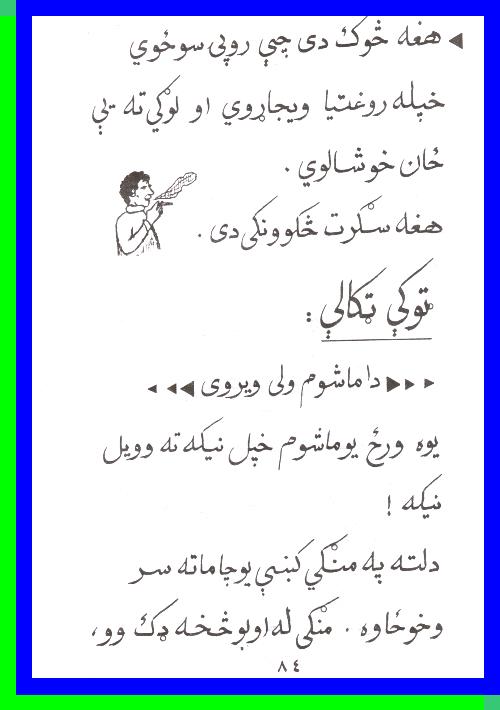 ◀ هغه څوک دی چې روپۍ سوځوي
خپله روغتيا ويجاړوي او لوګي ته يې
ځان خوشالوي .
هغه سګرت څکوونکی دی .
ټوکې ټکالې :
▶▶▶ دا ماشوم ولی ويروی ◀◀◀
يوه ورځ يو ماشوم خپل نيکه ته وويل
نيکه !
دلته په منګي کښې يو چا ماته سر
وخوځاوه . منګی له اوبو څخه ډک وو،
٨٤